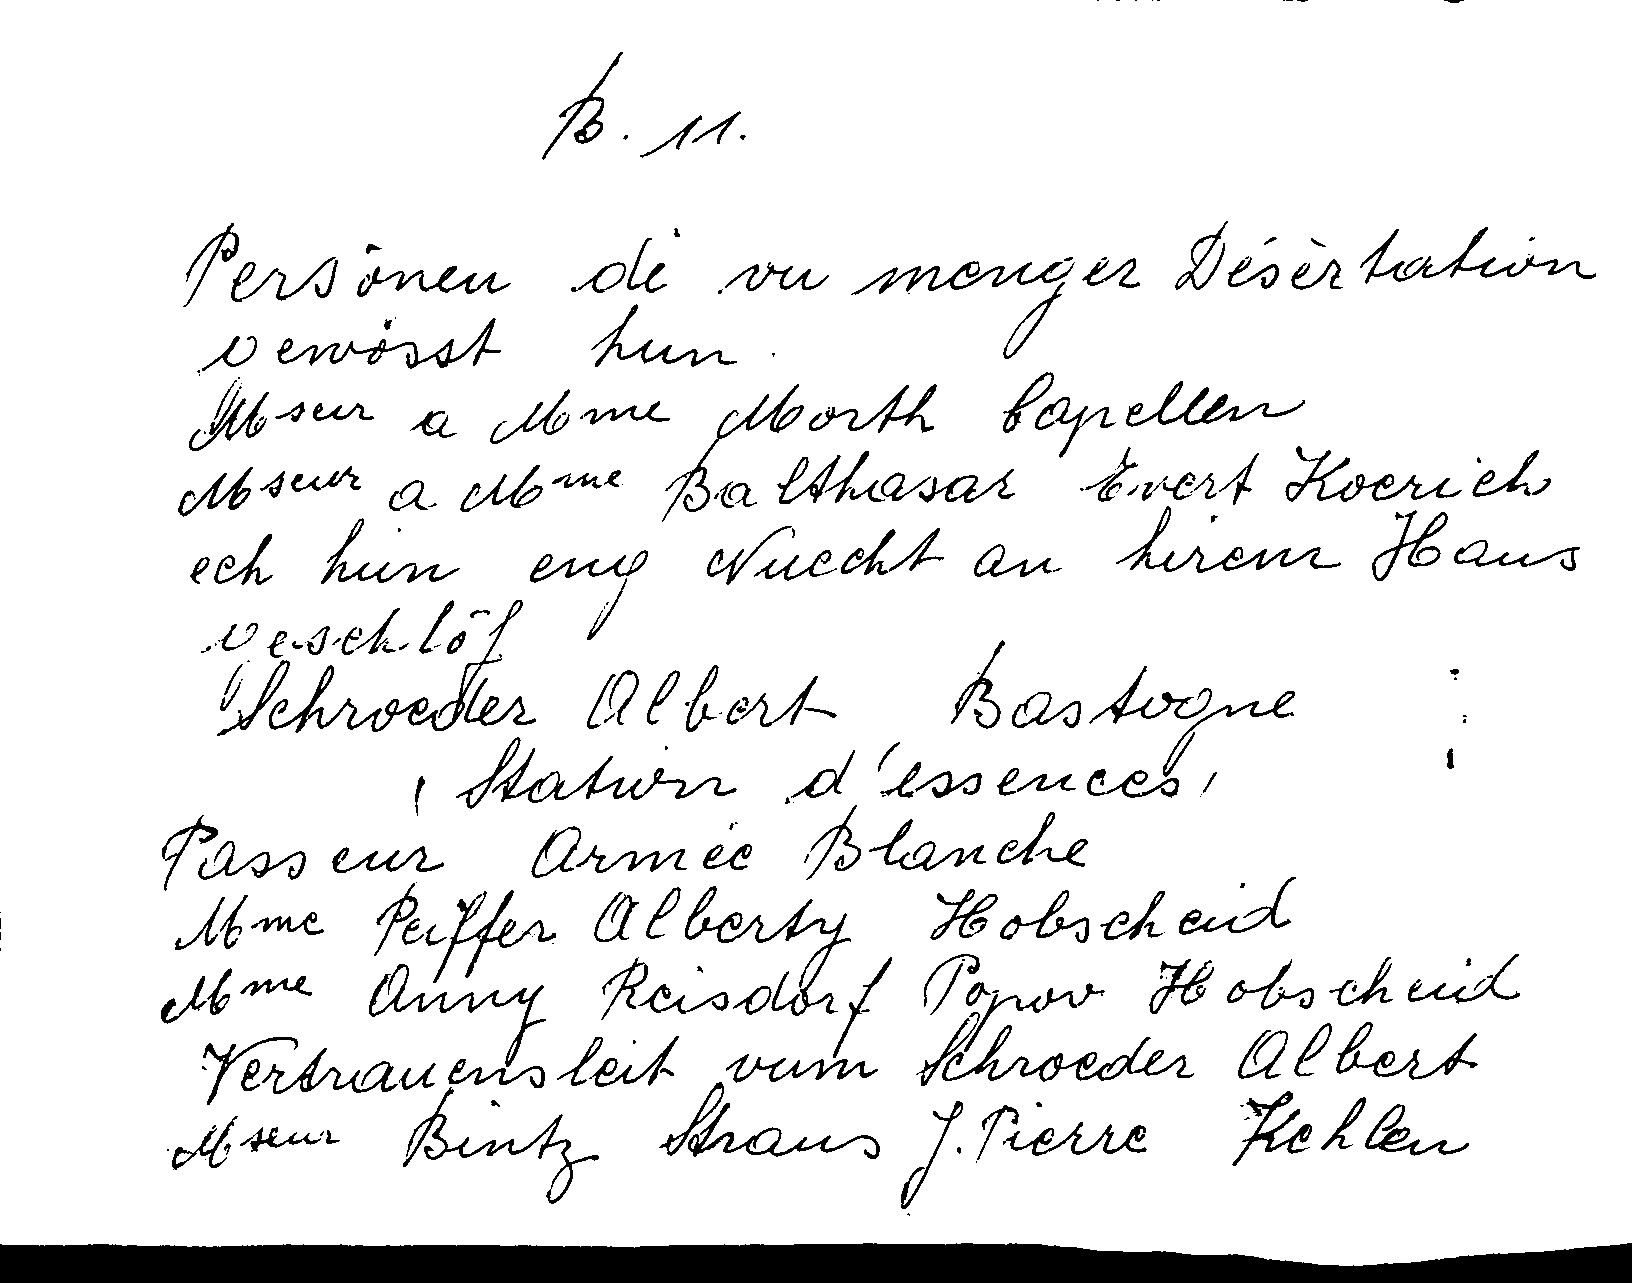 B. 11.
Persönen dè vu menger Désèrtation
vewösst hun.
Mseur a Mme Morth Capellen
Mseur a Mme Balthasar Evert Koerich
ech hun eng Nuecht an hirem Haus
veschlöf
Schroeder Albert Bastogne
(Station d'essences)
Passeur Armée Blanche
Mme Peiffer Alberty Hobscheid
Mme Anny Reisdorf Popov Hobscheid
Vertrauensleit vum Schroeder Albert
Mseur Bintz Straus J. Pierre Kehlen